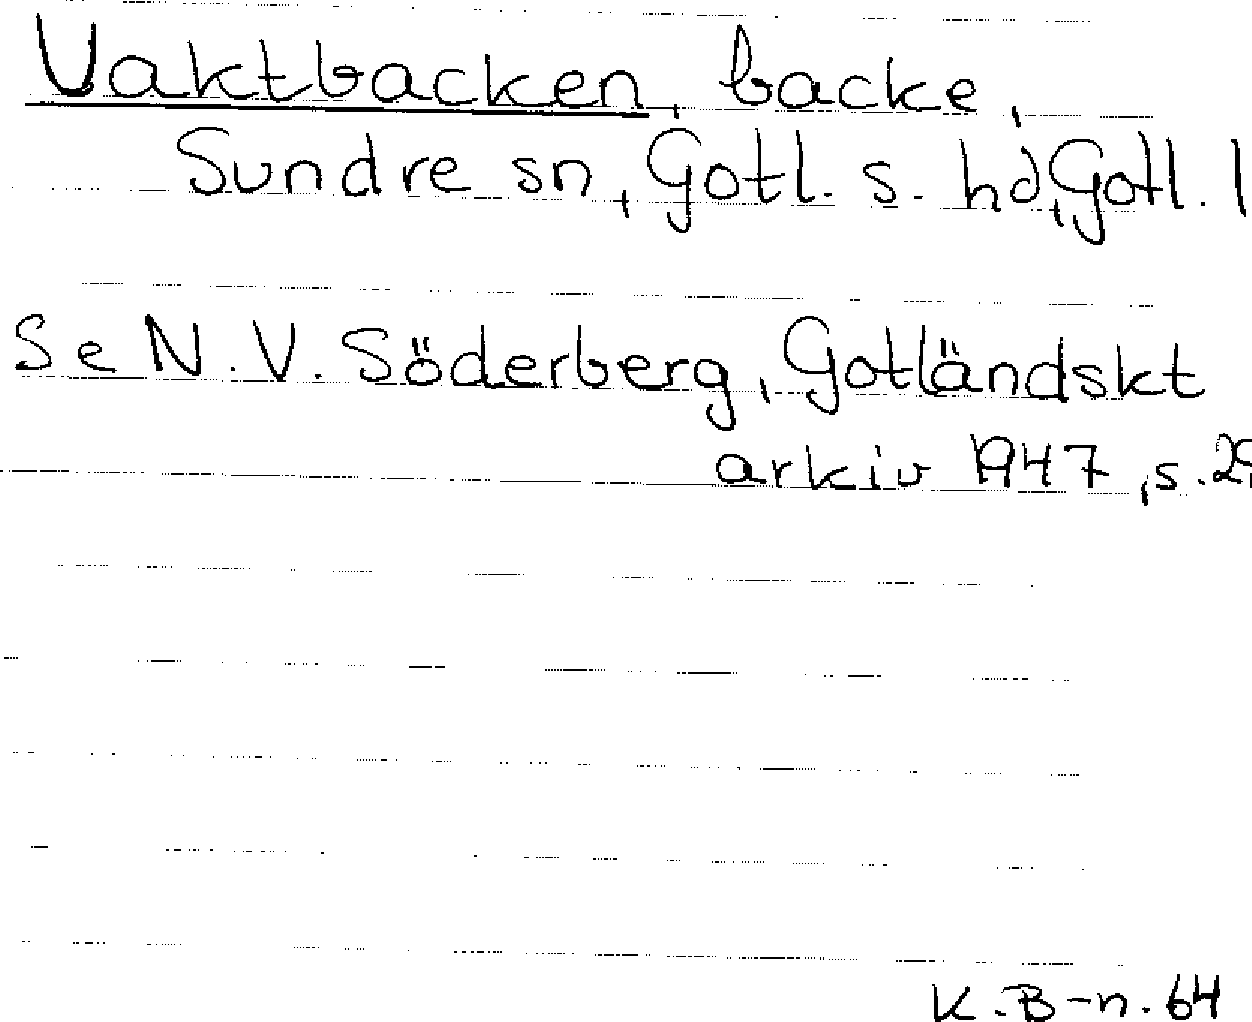 Vaktbacken, backe,
Sundre sn, Gotl. s. hd, Gotl. l
Se N. V. Söderberg, Gotländskt
arkiv 1947, s.
K.B-n. 64